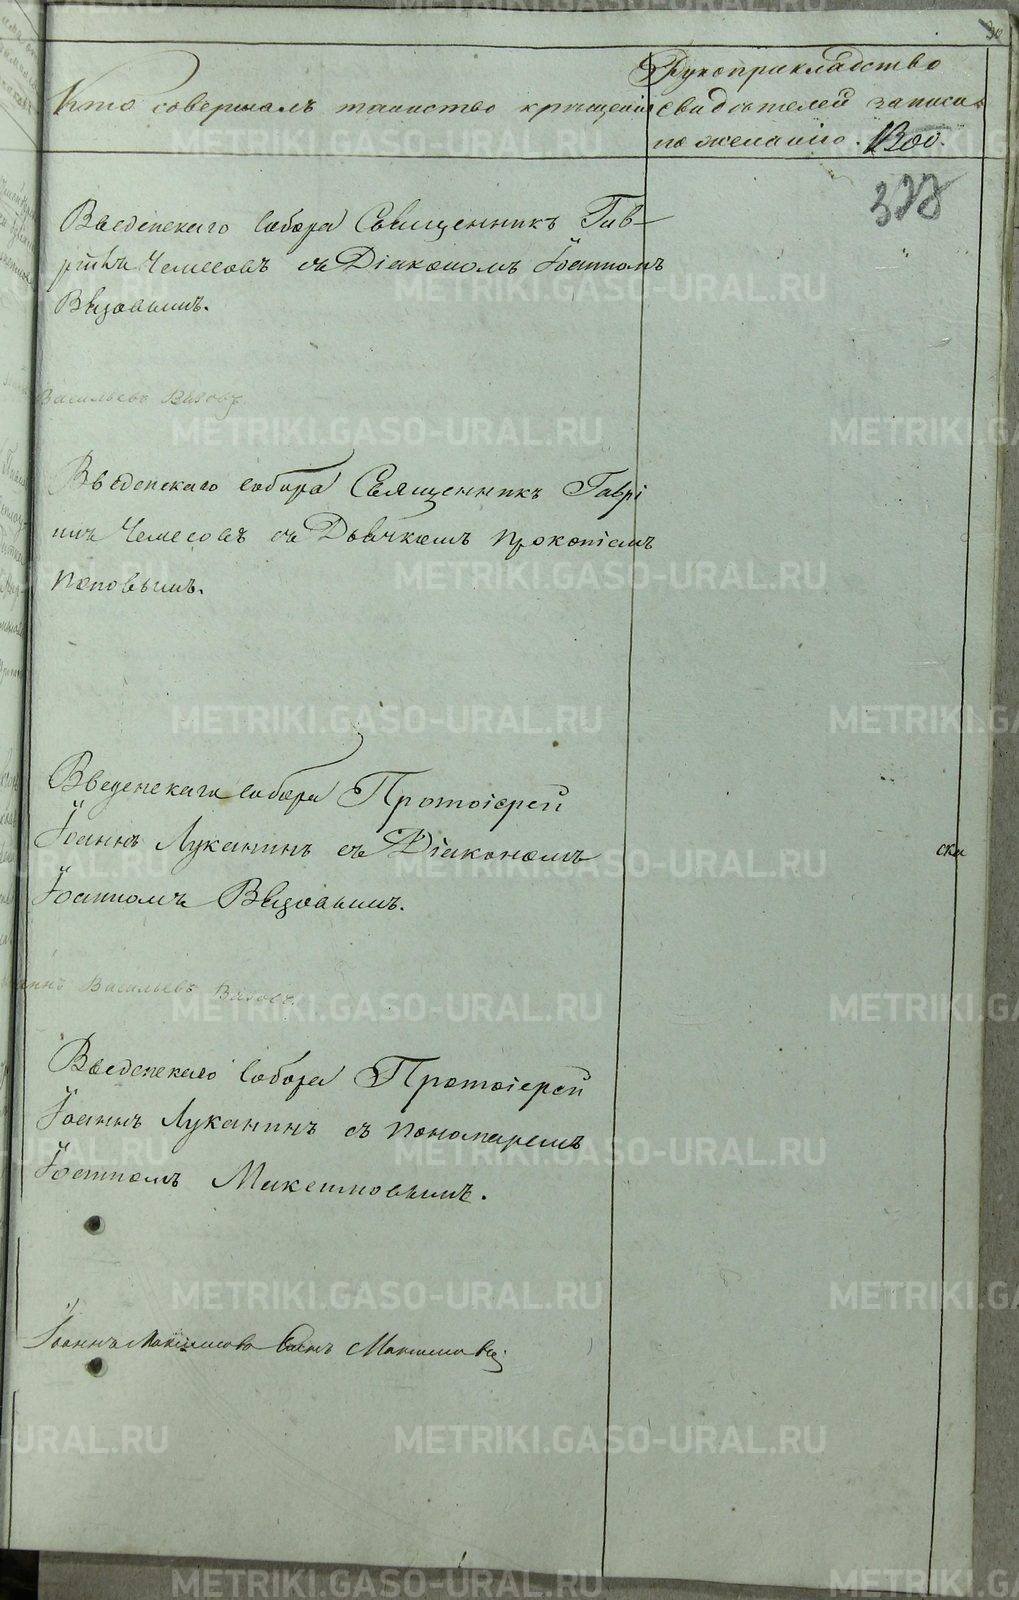 Кто совершалъ таинство крещенія
Рукоприкладство
свидѣтелей записи
по желанію.
377
Введенскаго собора Священникъ Гав-
ріилъ Чемесовъ съ Діакономъ Іоанномъ
Васильевъ
Введенскаго собора Священникъ Гаврі
илъ Чемесовъ съ Дьячкомъ Прокопіемъ
Поповымъ.
Введенскаго собора Протоіерей
Іоаннъ Луканинъ съ Діакономъ
Іоанномъ
Васильевъ
Введенскаго собора Протоіерей
Іоаннъ Луканинъ съ пономаремъ
Іоанномъ
Іоаннъ
METRIKI.GASO-URAL.RU